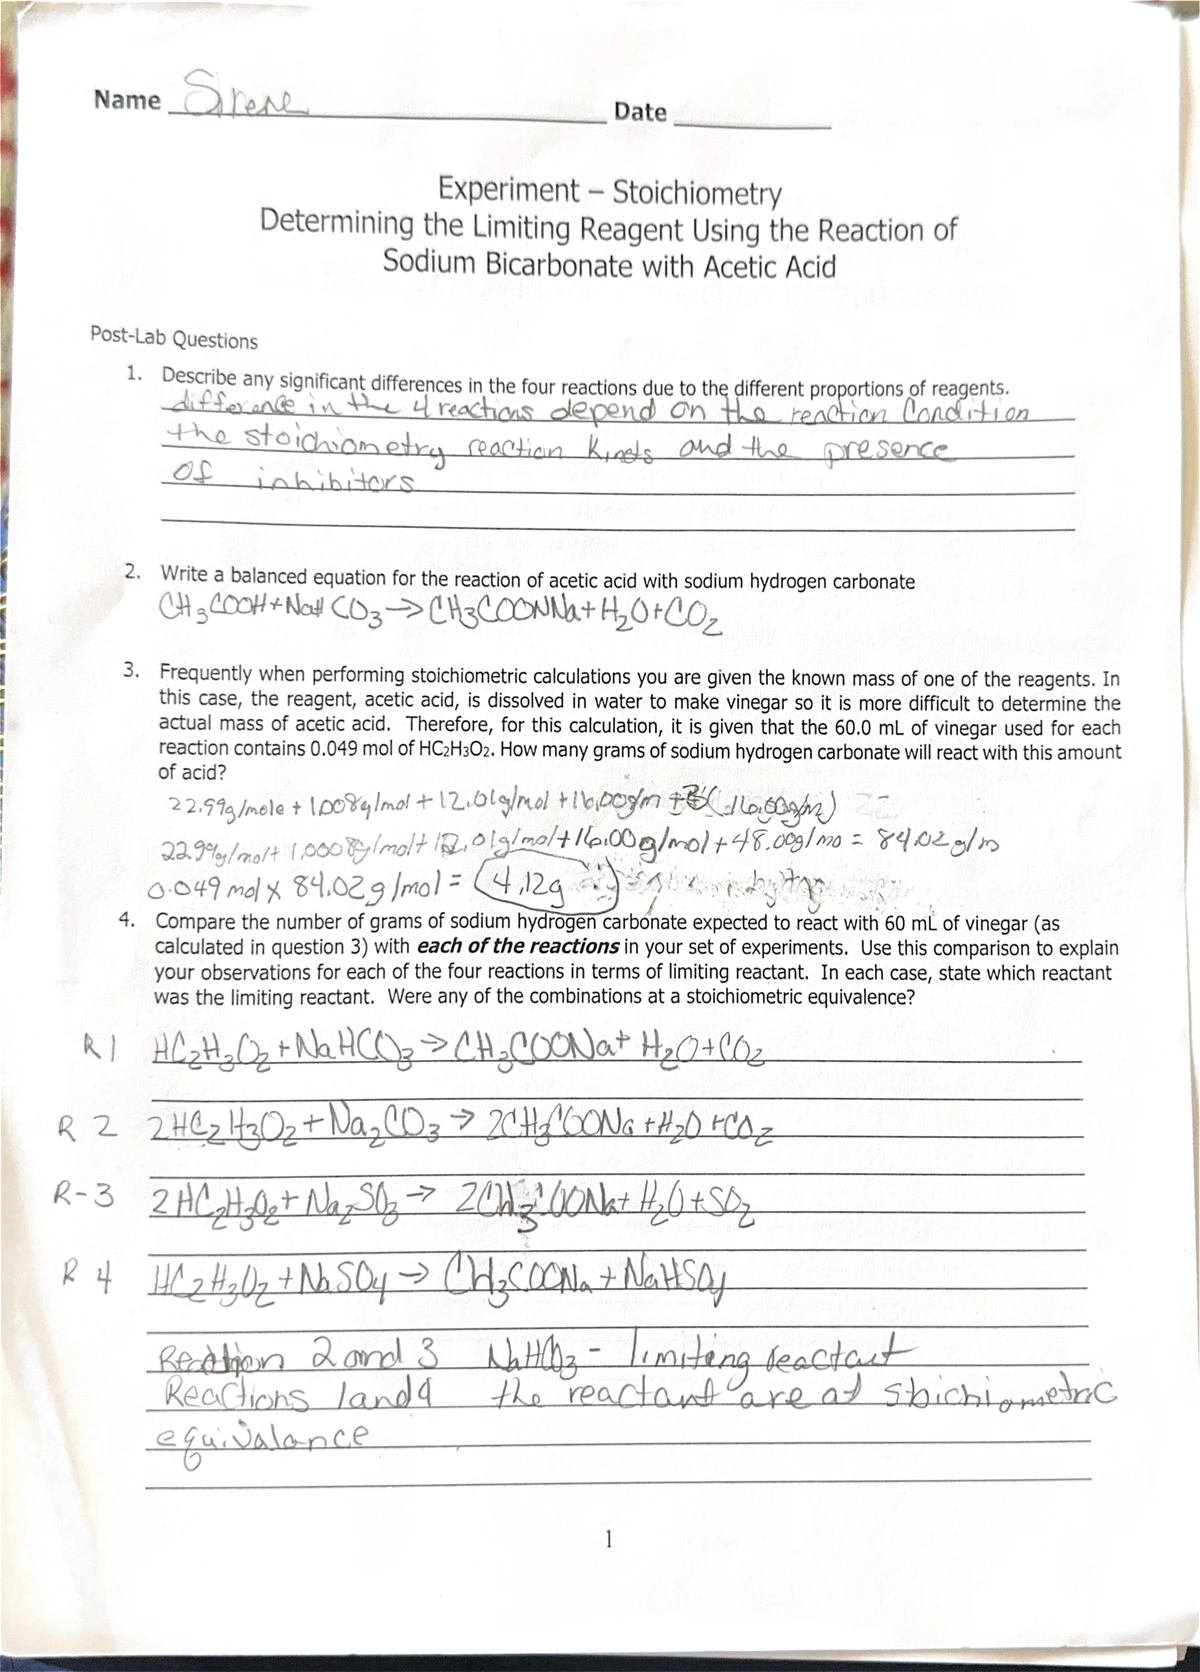 Name Sirene Date
Experiment – Stoichiometry
Determining the Limiting Reagent Using the Reaction of
Sodium Bicarbonate with Acetic Acid
Post-Lab Questions
1. Describe any significant differences in the four reactions due to the different proportions of reagents.
difference in the 4 reactions depend on the reaction Condition
the stoichiometry reaction kinets and the presence
of inhibitors
2. Write a balanced equation for the reaction of acetic acid with sodium hydrogen carbonate
CH3COOH + NaH CO3 → CH3COONNa + H2O + CO2
3. Frequently when performing stoichiometric calculations you are given the known mass of one of the reagents. In
this case, the reagent, acetic acid, is dissolved in water to make vinegar so it is more difficult to determine the
actual mass of acetic acid. Therefore, for this calculation, it is given that the 60.0 mL of vinegar used for each
reaction contains 0.049 mol of HC2H3O2. How many grams of sodium hydrogen carbonate will react with this amount
of acid?
22.99g/mole + 1.008g/mol + 12.01g/mol + 16.00g/m + 3(16.00g/m)
22.99g/mol + 1.0008g/mol + 12.01g/mol + 16.00g/mol + 48.00g/mo = 84.02 g/m
0.049 mol x 84.02 g/mol = 4.12g
4. Compare the number of grams of sodium hydrogen carbonate expected to react with 60 mL of vinegar (as
calculated in question 3) with each of the reactions in your set of experiments. Use this comparison to explain
your observations for each of the four reactions in terms of limiting reactant. In each case, state which reactant
was the limiting reactant. Were any of the combinations at a stoichiometric equivalence?
R1 HC2H3O2 + NaHCO3 → CH3COONa + H2O + CO2
R 2 2HC2H3O2 + Na2CO3 → 2CH3COONa + H2O + CO2
R-3 2HC2H3O2 + Na2SO3 → 2CH3COONa + H2O + SO2
R 4 HC2H3O2 + NaSO4 → CH3COONa + NaHSO4
Reaction 2 and 3 NaHCO3 - limiting reactant
Reactions 1 and 4 the reactant are at stoichiometric
equivalance
1